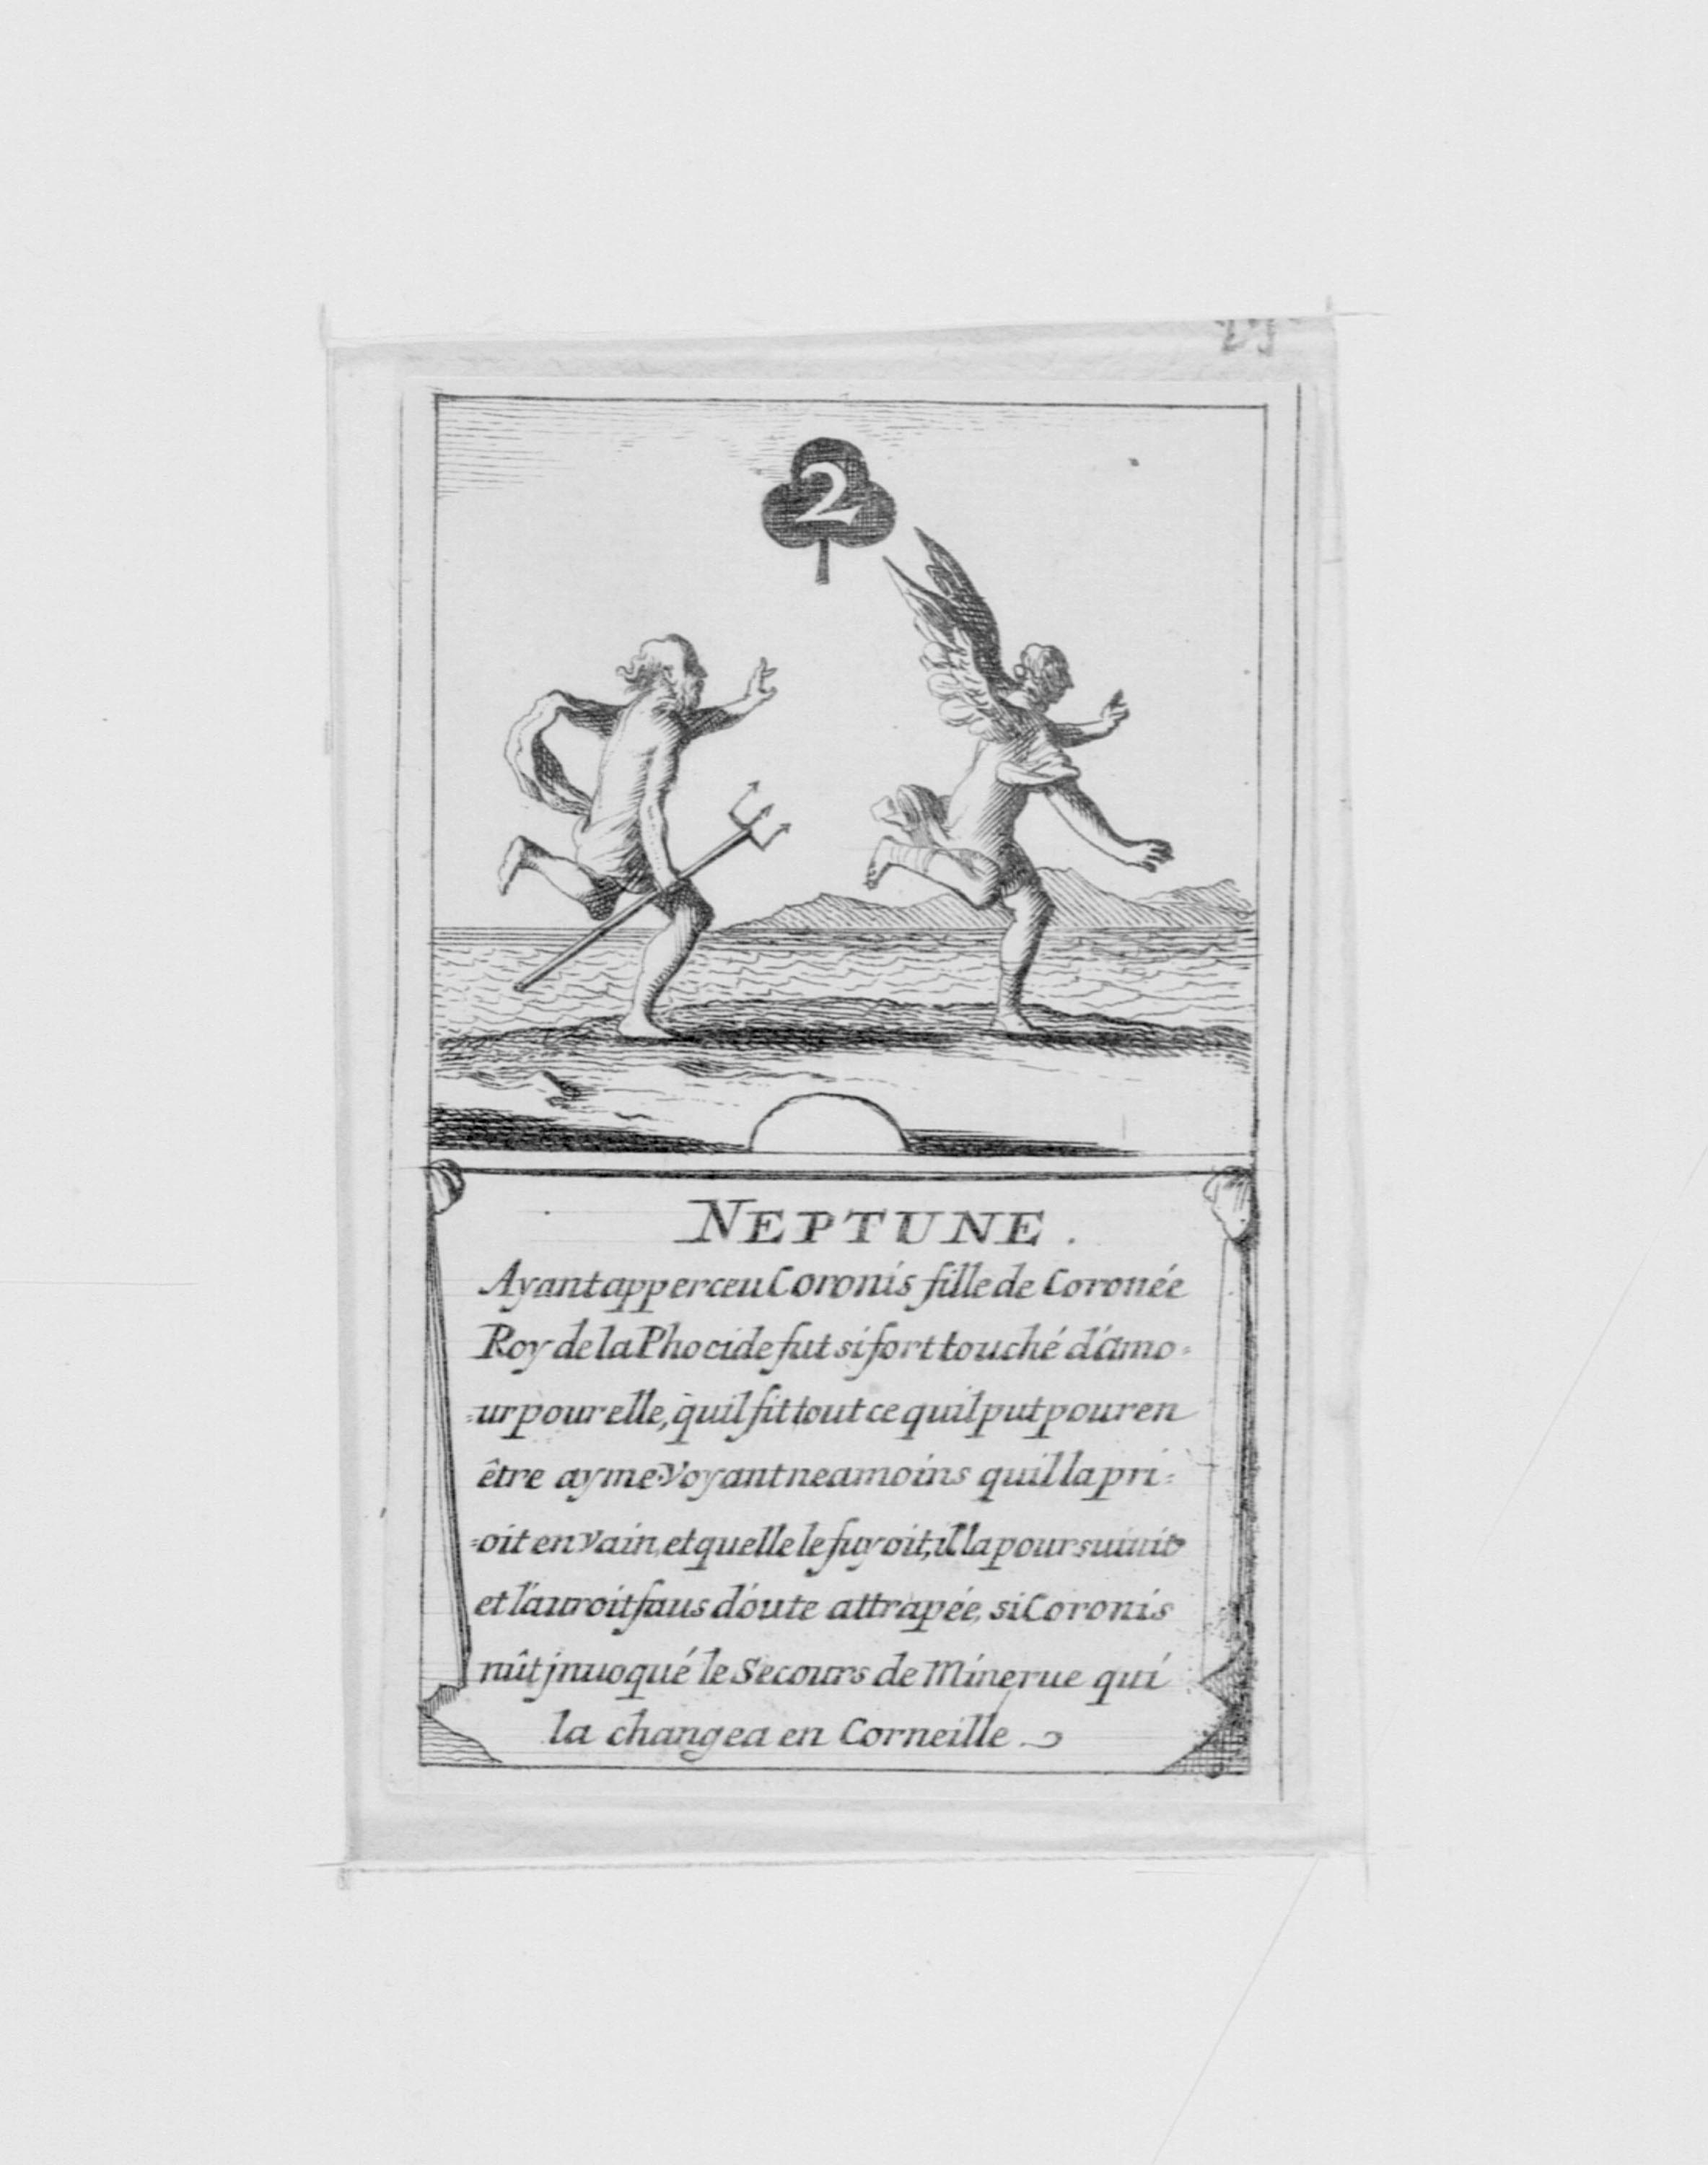 2
NEPTUNE.
Ayant apperceu Coronis fille de Coronée
Roy de la Phocide fut si fort touché d'amo=
=ur pour elle, quil fit tout ce quil put pour en
être ayme. Voyant neamoins quil la pri=
=oit en vain, et quelle le fuyoit, il la poursuiuit
et l'auroit saus d'oute attrapée, si Coronis
nût jnuoqué le Secours de Minerue qui
la changea en Corneille.